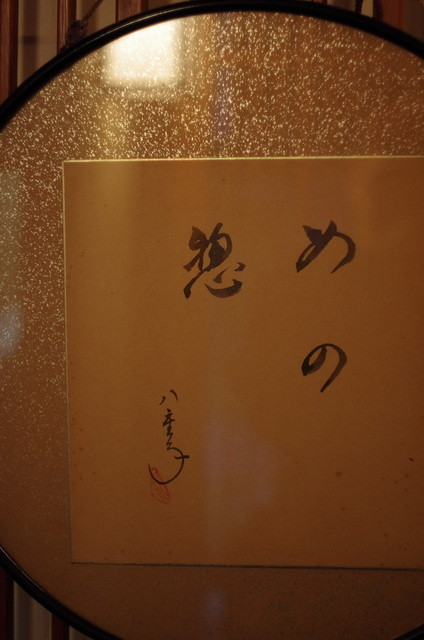 めの
惣
八重子